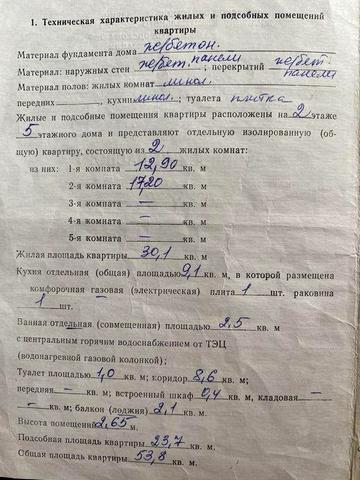 1. Техническая характеристика жилых и подсобных помещений
квартиры
Материал фундамента дома ж/бетон.
Материал: наружных стен ж/бет. панели; перекрытий ж/бет.
панели
Материал полов: жилых комнат линол.
передних, кухни линол.; туалета плитка
Жилые и подсобные помещения квартиры расположены на 2 этаже
5 этажного дома и представляют отдельную изолированную (об-
щую) квартиру, состоящую из 2 жилых комнат:
из них: 1-я комната 12,90 кв. м
2-я комната 17,20 кв. м
3-я комната — кв. м
4-я комната — кв. м
5-я комната — кв. м
Жилая площадь квартиры 30,1 кв. м
Кухня отдельная (общая) площадью 9,1 кв. м, в которой размещена
комфорочная газовая (электрическая) плита 1 шт. раковина
1 шт.
Ванная отдельная (совмещенная) площадью 2,5 кв. м
с центральным горячим водоснабжением от ТЭЦ
(водонагревной газовой колонкой);
Туалет площадью 1,0 кв. м; коридор 8,6 кв. м;
передняя — кв. м; встроенный шкаф 0,4 кв. м, кладовая —
— кв. м; балкон (лоджия) 2,1 кв. м.
Высота помещения 2,65 м.
Подсобная площадь квартиры 23,7 кв. м.
Общая площадь квартиры 53,8 кв. м.